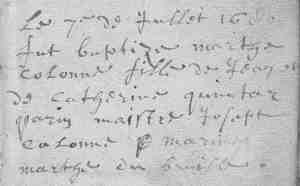 Le 7e de Juillet 16
fut baptize marthe
Colonne fille de Jean et
de Catherine
parin maistre Joseph
Colonne marine
marthe du